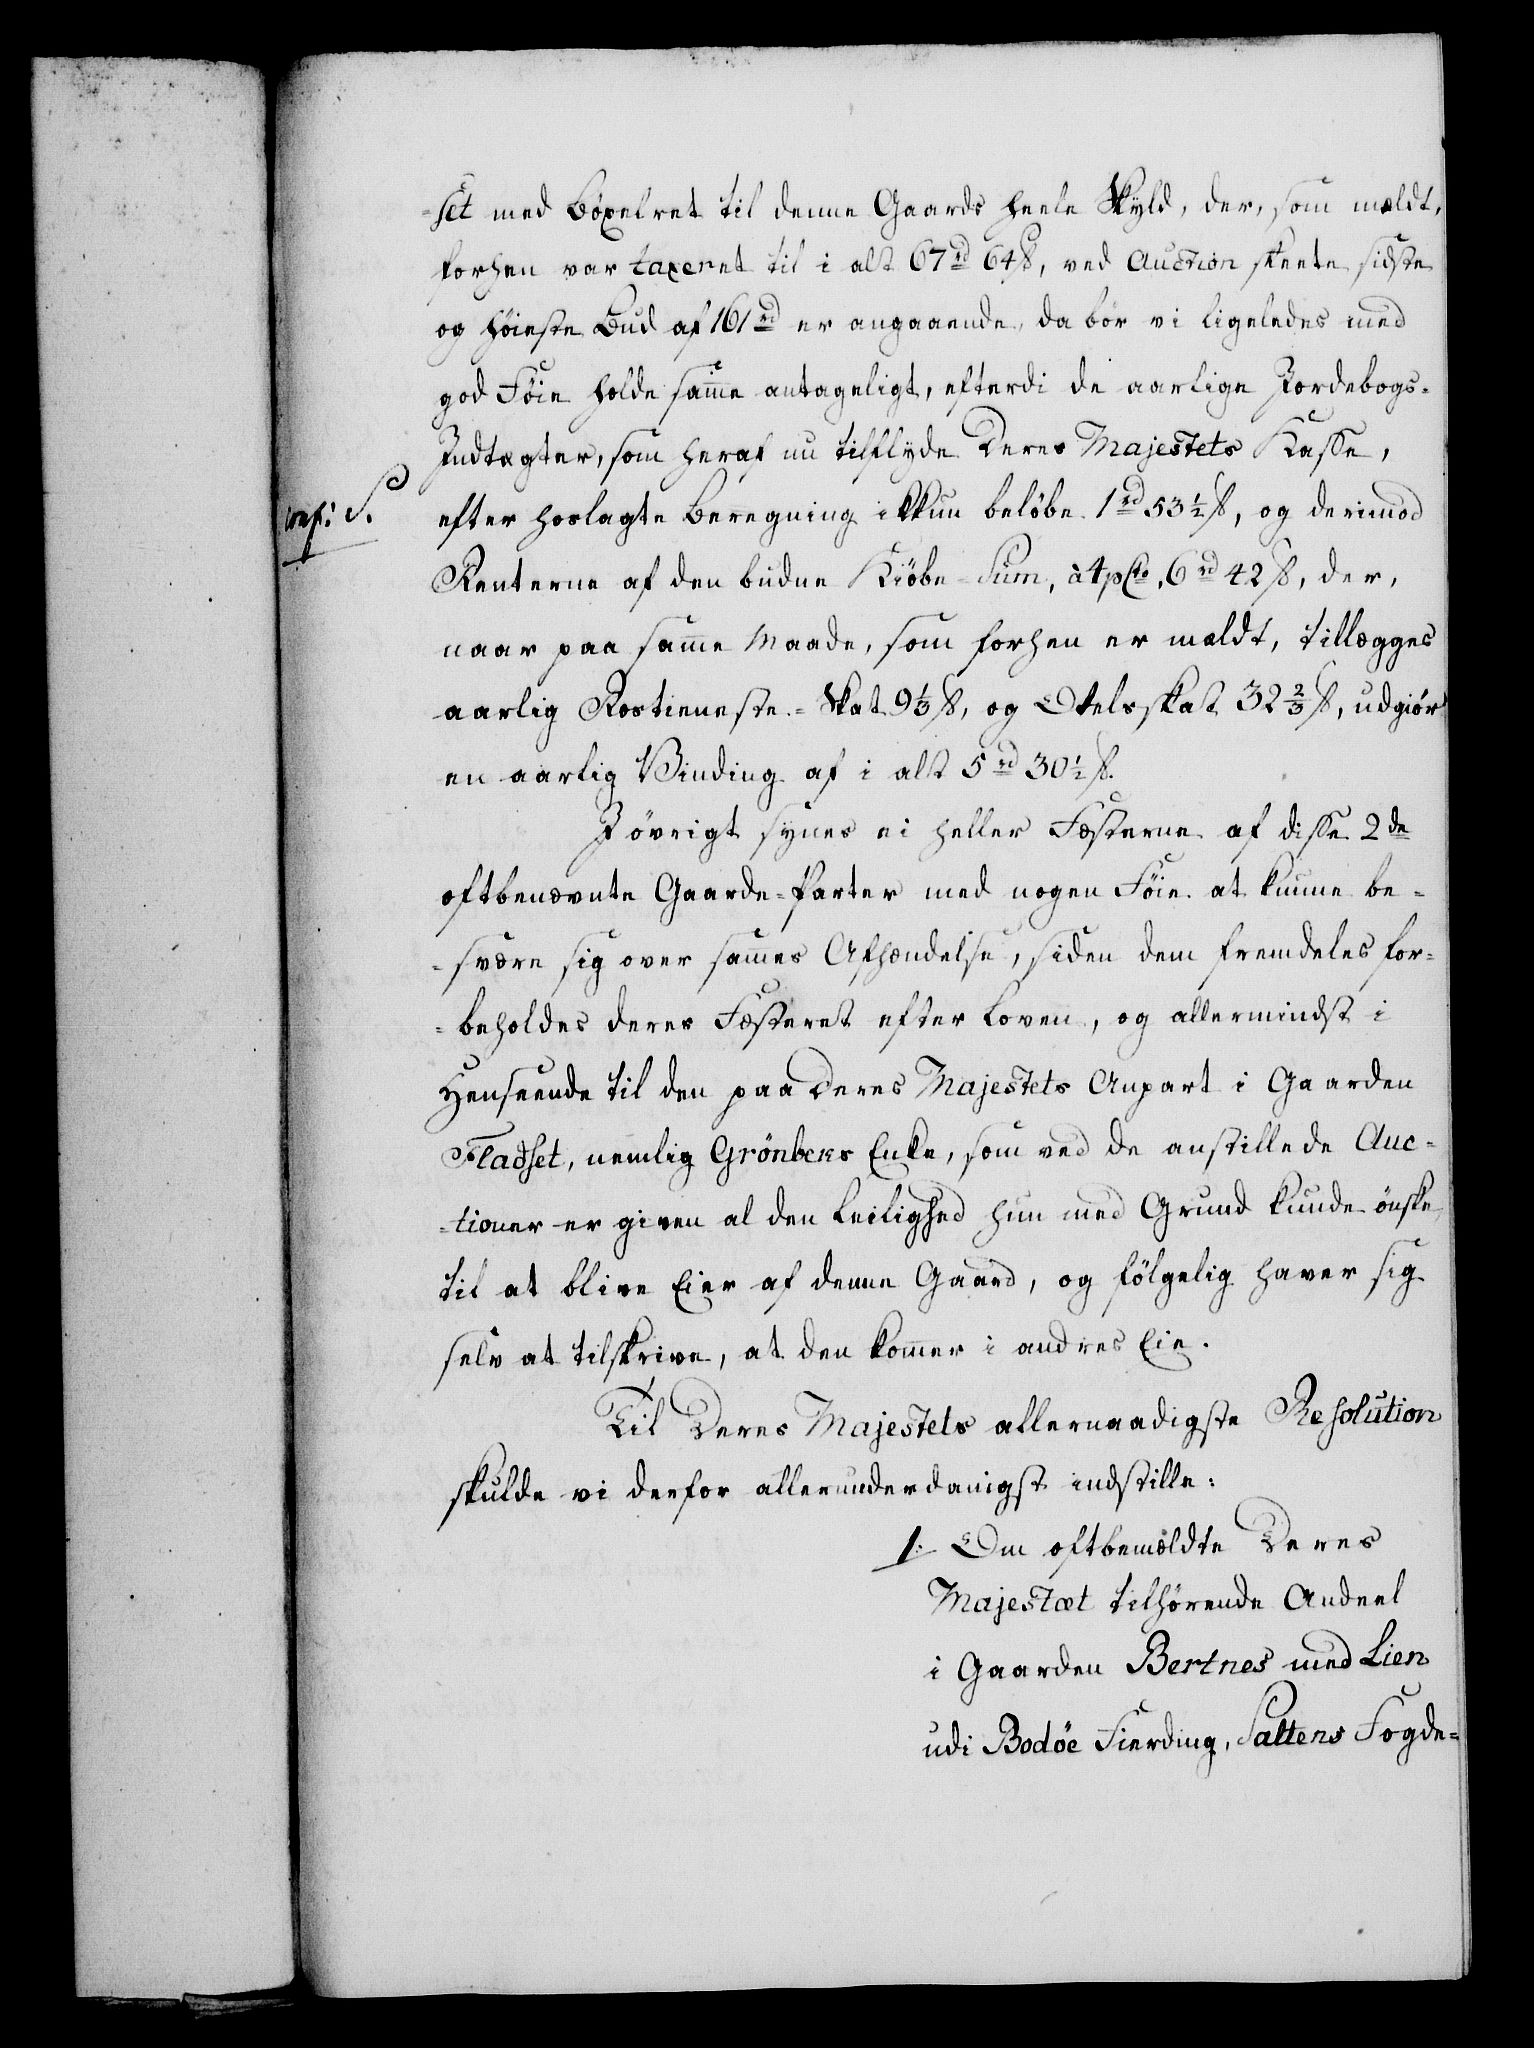 =set med Böxelret til denne Gaards heele Skyld, der, som meldt,
forhen var taxeret til i alt 67 rd 64 ß, ved Auction skeete sidste
og höieste Bud af 161 rd er angaaende, da bör vi ligeledes med
god Föie holde samme antageligt, efterdi de aarlige Jordebogs-
Indtægter, som heraf nu tilflyde Deres Majestets Kasse,
ref: S.
efter hoslagte Beregning ikkun belöbe 1 rd 53½ ß, og derimod
Renterne af den budne Kiöbe-Sum, à 4 pCto, 6 rd 42 ß, der,
naar paa samme Maade, som forhen er meldt, tillægges
aarlig Rostieneste-Skat 9⅓ ß, og Odelsskat 32⅔ ß, udgiör
en aarlig Vinding af i alt 5 rd 30½ ß.
I övrigt synes ei heller Fæsterne af disse 2de
oftbenævnte Gaarde-Parter med nogen Föie at kunne be-
=svære sig over sammes Afhændelse, siden dem fremdeles for-
=beholdes deres Fæsteret efter Loven, og allermindst i
Henseende til den paa Deres Majestets Anpart i Gaarden
Fladset, nemlig Grönbeks Enke, som ved de anstillede Auc-
=tioner er given al den Leilighed hun med Grund kunde önske
til at blive Eier af denne Gaard, og fölgelig haver sig
selv at tilskrive, at den kommer i andres Eie.
Til Deres Majestets allernaadigste Resolution
skulde vi derfor allerunderdanigst indstille:
1. Om oftbemeldte Deres
Majestæt tilhörende Andeel
i Gaarden Bertnes med Lien
udi Bodöe Fierding, Saltens Fogde-